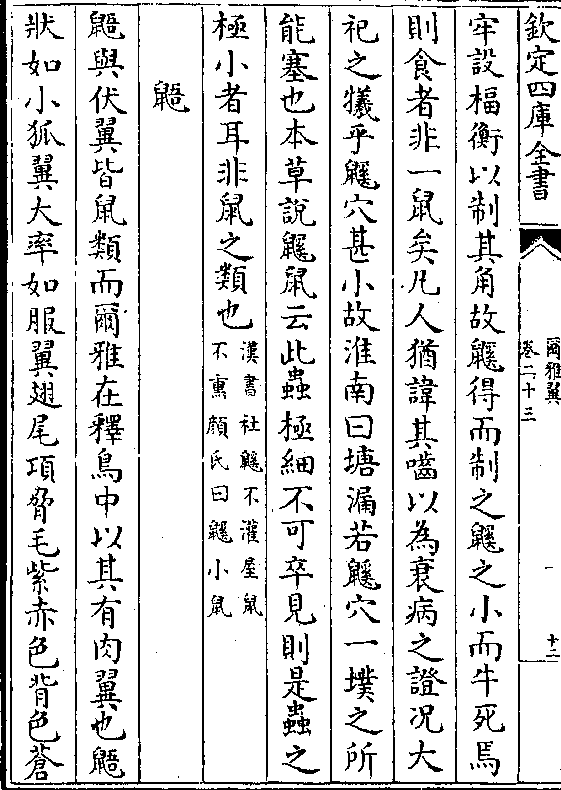 欽定四庫全書
爾雅翼
卷二十三
十二
牢設楅衡以制其角故鼷得而制之鼷之小而牛死焉
則食者非一鼠矣凡人猶諱其嚙以為衰病之證况大
祀之犧乎鼷穴甚小故淮南曰塘漏若鼷穴一墣之所
能塞也本草說鼷鼠云此蟲極細不可卒見則是蟲之
極小者耳非鼠之類也漢書社鼷不灌屋鼠
不熏顔氏曰鼷小鼠
鼯
鼯與伏翼皆鼠類而爾雅在釋鳥中以其有肉翼也鼯
狀如小狐翼大率如服翼翅尾項脅毛紫赤色背色蒼